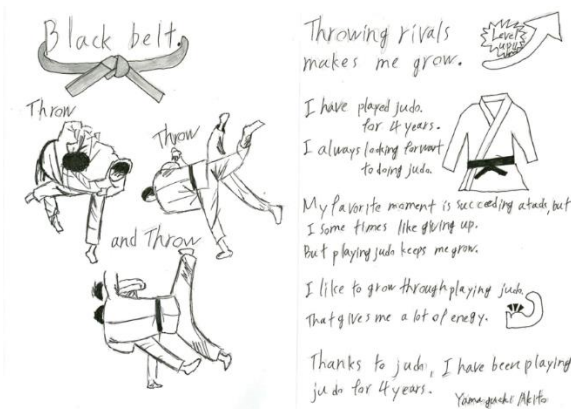 Black belt.
Throw
Throw
and Throw
Throwing rivals
makes me grow.
Level
up!!
I have played judo.
for 4 years.
I always looking forwart
to doing judo.
My favorite moment is succeeding atack, but
I some times like giving up.
But playing judo keeps me grow.
I like to grow through playing judo.
That gives me a lot of enegy.
Thanks to judo, I have been playing
judo for 4 years.
Yamaguchi Akito